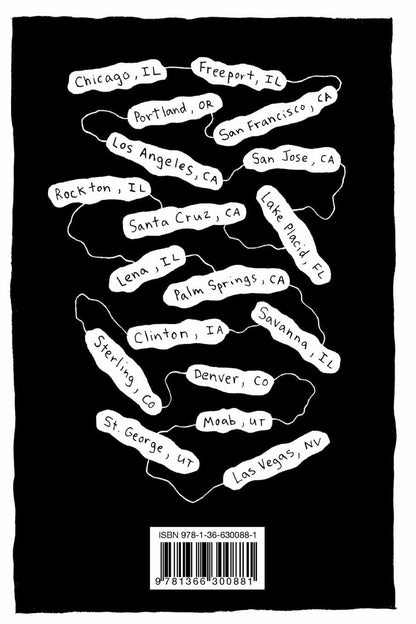 Chicago, IL
Freeport, IL
Portland, OR
San Francisco, CA
Los Angeles, CA
San Jose, CA
Rockton, IL
Santa Cruz, CA
Lake Placid, FL
Lena, IL
Palm Springs, CA
Clinton, IA
Savanna, IL
Sterling, CO
Denver, CO
Moab, UT
St. George, UT
Las Vegas, NV
ISBN 978-1-36-630088-1
9 781366 300881